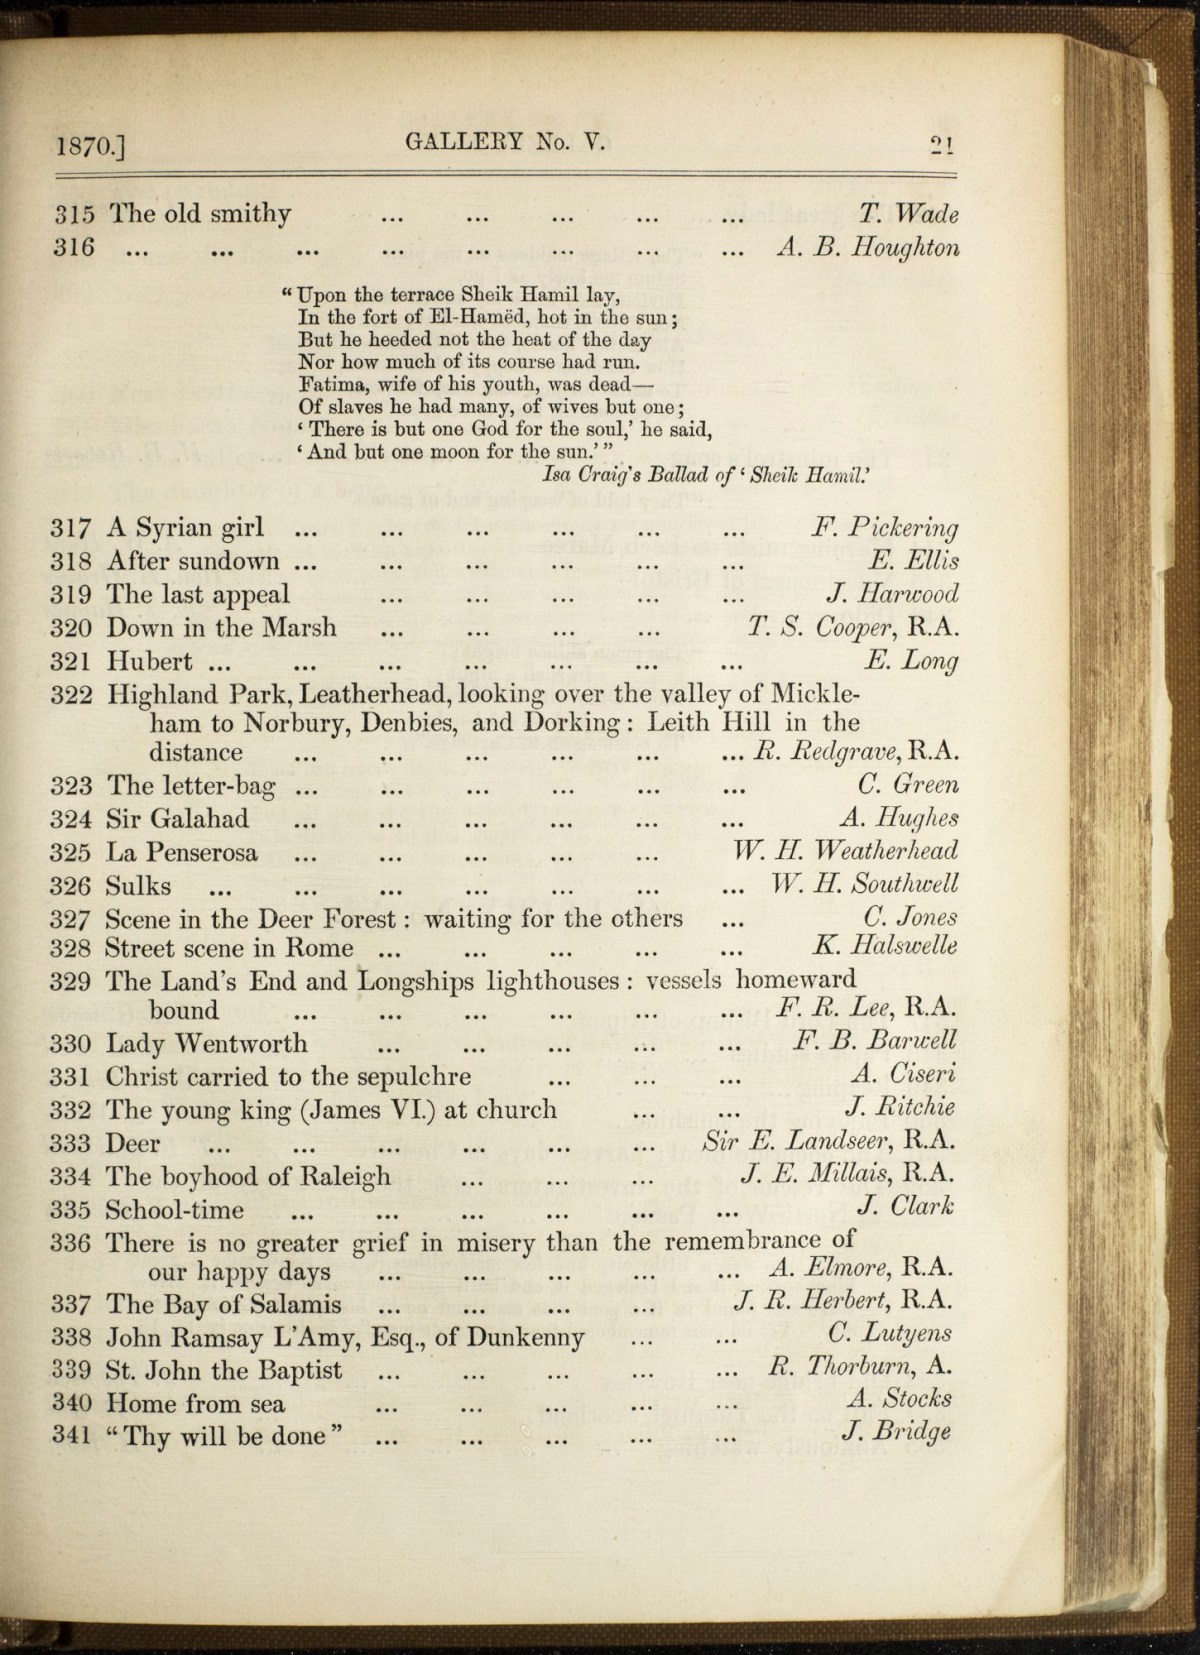 1870.] GALLERY No. V. 21
315 The old smithy ... ... ... ... ... T. Wade
316 ... ... ... ... ... ... ... ... A. B. Houghton
“Upon the terrace Sheik Hamil lay,
In the fort of El-Hamëd, hot in the sun;
But he heeded not the heat of the day
Nor how much of its course had run.
Fatima, wife of his youth, was dead—
Of slaves he had many, of wives but one;
‘There is but one God for the soul,’ he said,
‘And but one moon for the sun.’”
Isa Craig's Ballad of ‘Sheik Hamil.’
317 A Syrian girl ... ... ... ... ... ... F. Pickering
318 After sundown ... ... ... ... ... ... E. Ellis
319 The last appeal ... ... ... ... ... J. Harwood
320 Down in the Marsh ... ... ... ... T. S. Cooper, R.A.
321 Hubert ... ... ... ... ... ... ... E. Long
322 Highland Park, Leatherhead, looking over the valley of Mickle-
ham to Norbury, Denbies, and Dorking: Leith Hill in the
distance ... ... ... ... ... ... R. Redgrave, R.A.
323 The letter-bag ... ... ... ... ... ... C. Green
324 Sir Galahad ... ... ... ... ... ... A. Hughes
325 La Penserosa ... ... ... ... ... W. H. Weatherhead
326 Sulks ... ... ... ... ... ... ... W. H. Southwell
327 Scene in the Deer Forest: waiting for the others ... C. Jones
328 Street scene in Rome ... ... ... ... ... K. Halswelle
329 The Land's End and Longships lighthouses: vessels homeward
bound ... ... ... ... ... ... F. R. Lee, R.A.
330 Lady Wentworth ... ... ... ... ... F. B. Barwell
331 Christ carried to the sepulchre ... ... ... A. Ciseri
332 The young king (James VI.) at church ... ... J. Ritchie
333 Deer ... ... ... ... ... ... Sir E. Landseer, R.A.
334 The boyhood of Raleigh ... ... ... J. E. Millais, R.A.
335 School-time ... ... ... ... ... ... J. Clark
336 There is no greater grief in misery than the remembrance of
our happy days ... ... ... ... ... A. Elmore, R.A.
337 The Bay of Salamis ... ... ... ... J. R. Herbert, R.A.
338 John Ramsay L'Amy, Esq., of Dunkenny ... ... C. Lutyens
339 St. John the Baptist ... ... ... ... ... R. Thorburn, A.
340 Home from sea ... ... ... ... ... A. Stocks
341 “Thy will be done” ... ... ... ... ... J. Bridge